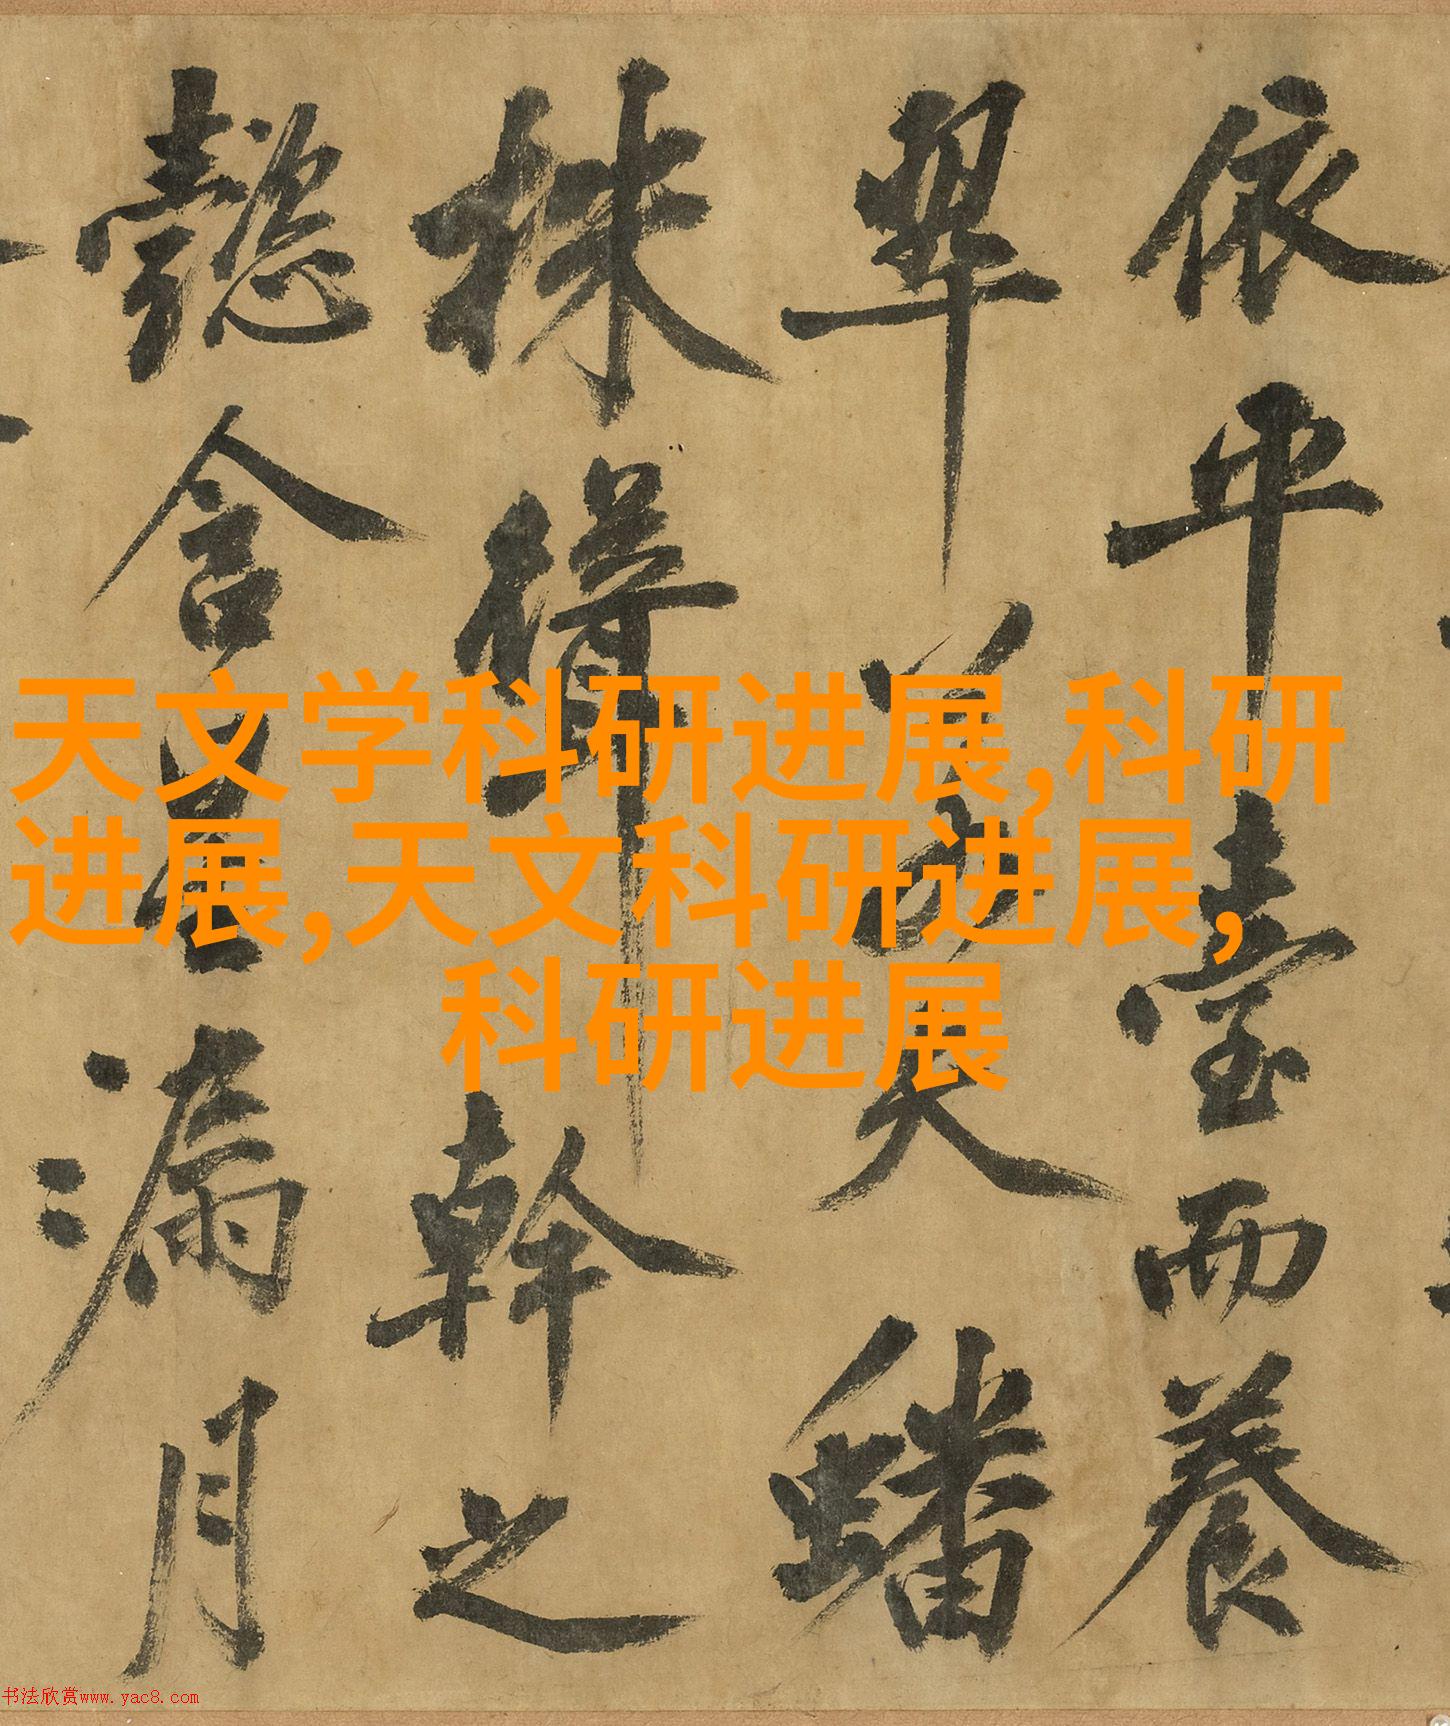 依平臺而養
翠夫蟠
株幹之
懿含星漏月
天文学科研进展,科研
进展,天文科研进展,
科研进展
书法欣赏www.yac8.com